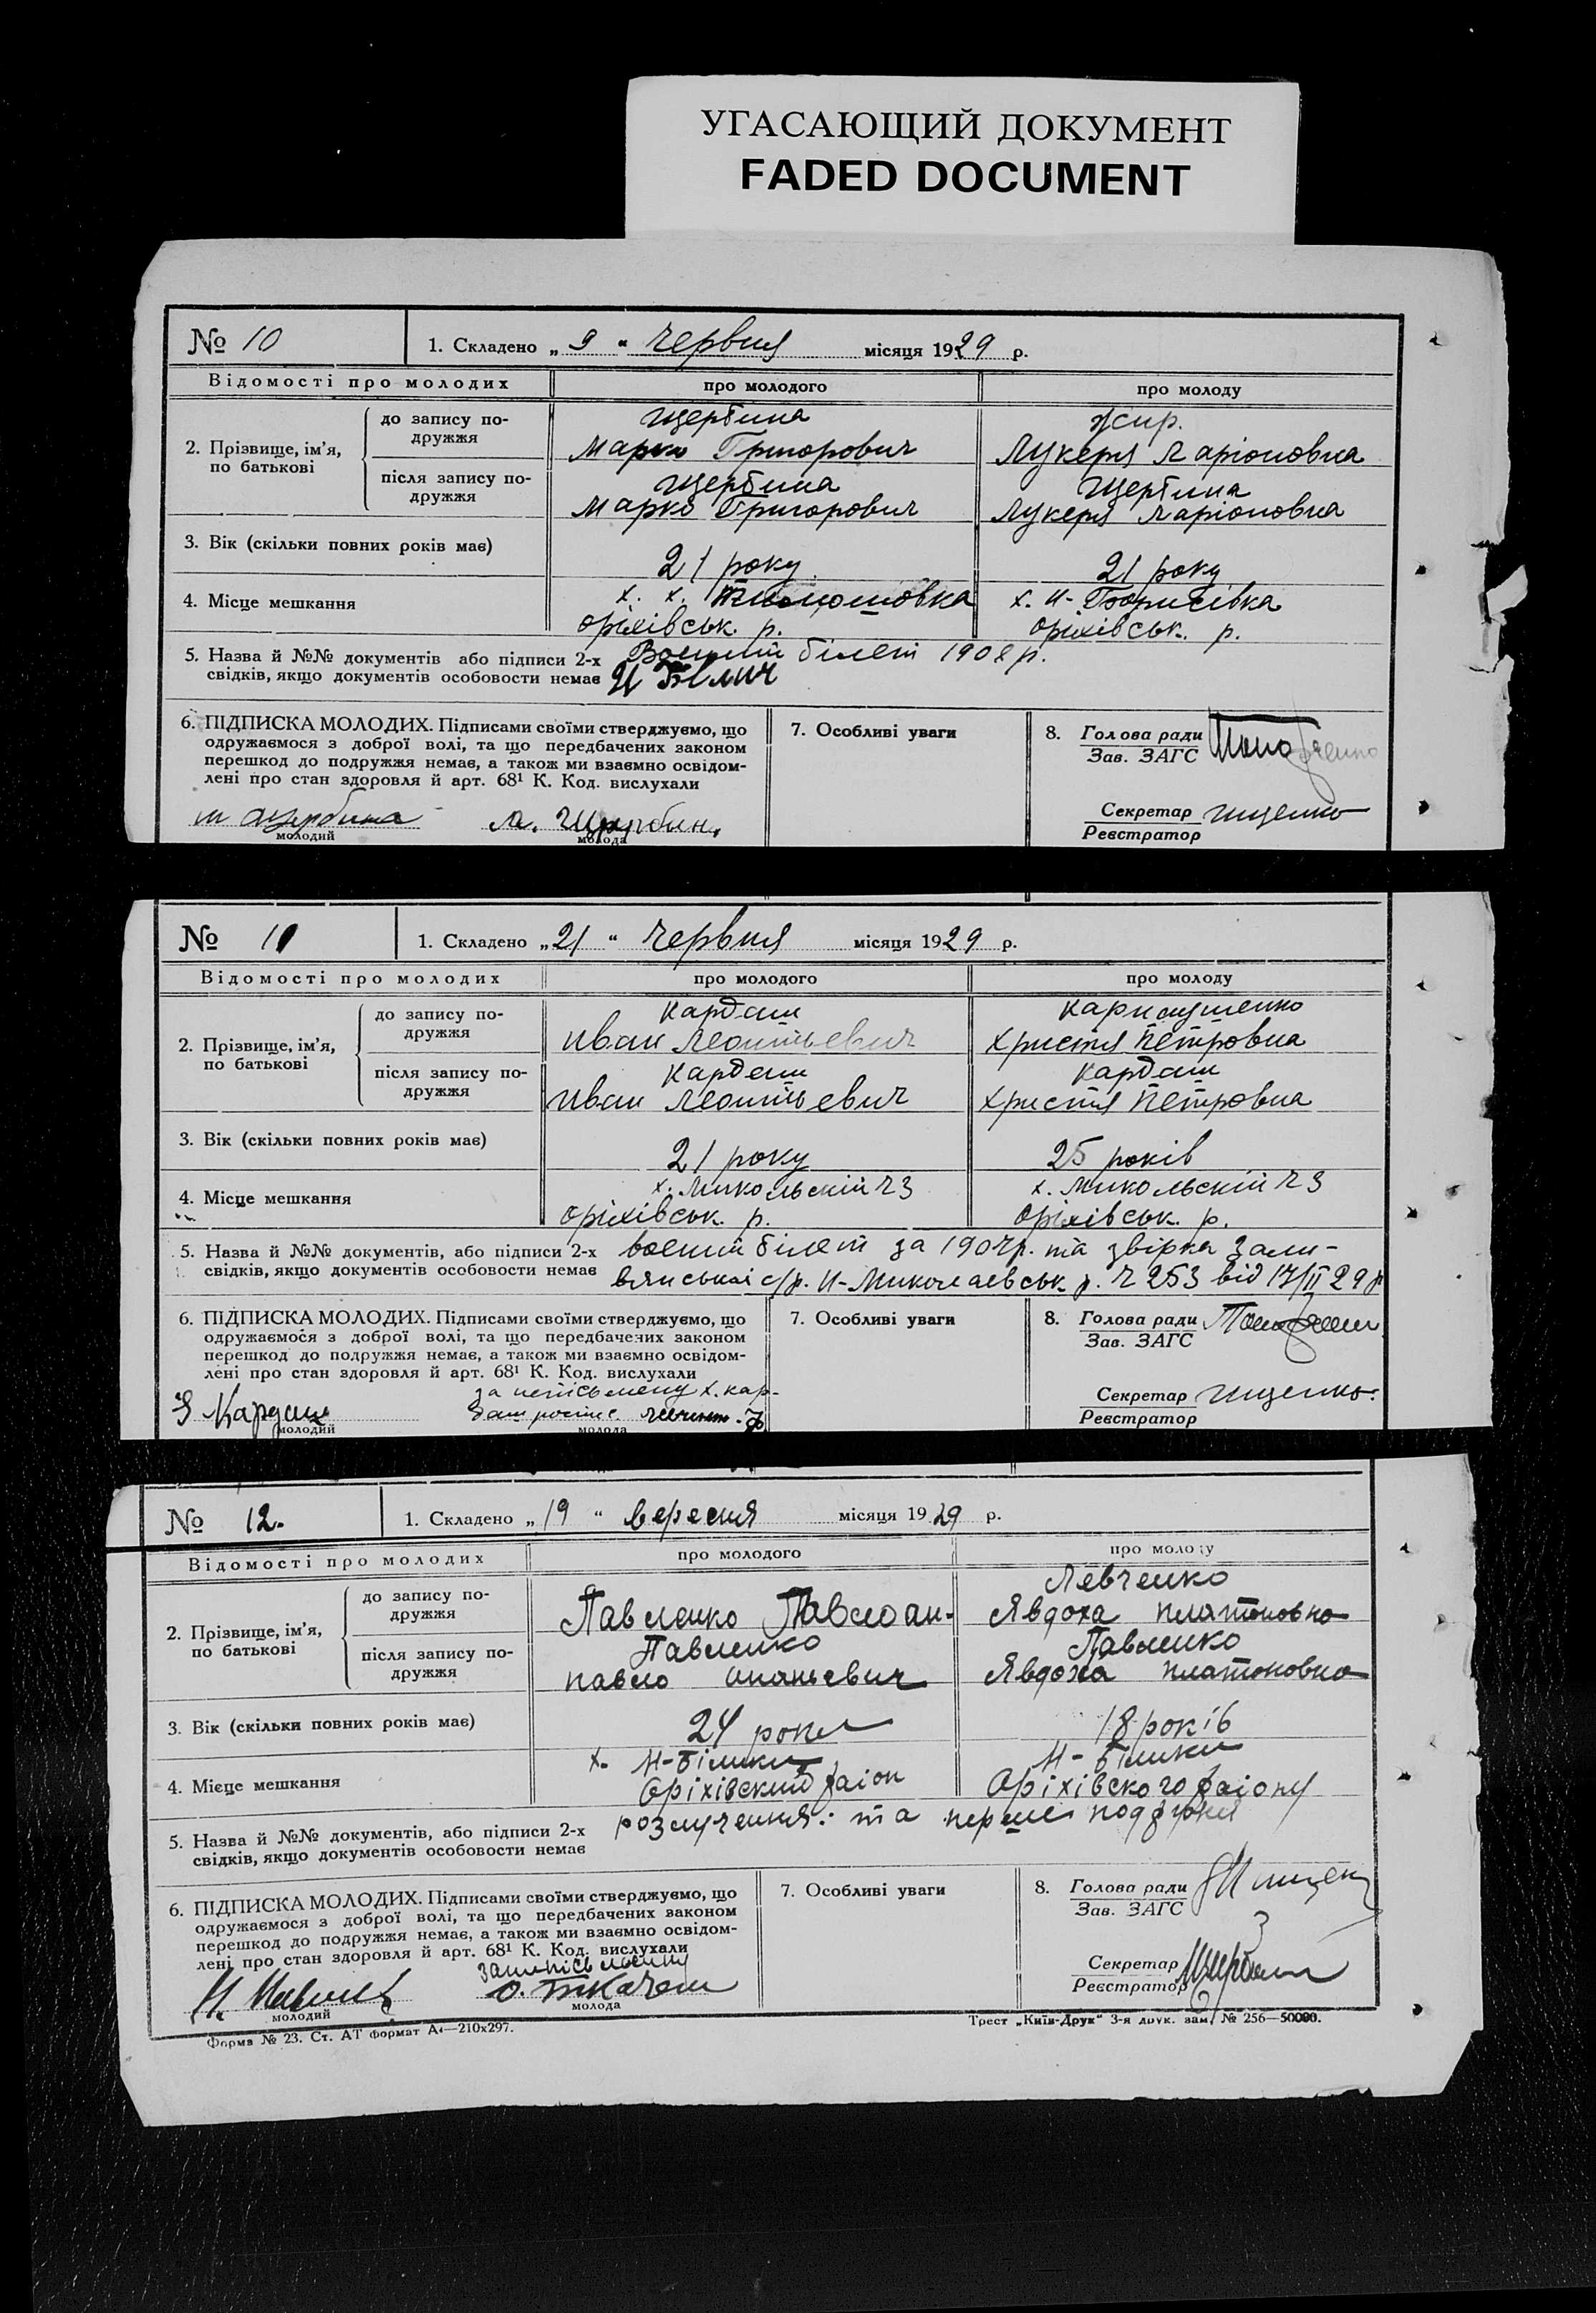 УГАСАЮЩИЙ ДОКУМЕНТ
FADED DOCUMENT
№ 10
1. Складено „ 9 “ червня місяця 1929 р.
Відомості про молодих
про молодого
про молоду
2. Прізвище, ім’я, по батькові
до запису подружжя
Щербина
Марко Григорович
Жир.
Лукеря Ларіоновна
після запису подружжя
Щербина
Марко Григорович
Щербина
Лукеря Ларіоновна
3. Вік (скільки повних років має)
21 року
21 року
4. Місце мешкання
х.
оріхівськ. р.
х. Н-Борисівка
оріхівськ. р.
5. Назва й №№ документів або підписи 2-х
свідків, якщо документів особовости немає
Воєнний білет 1908 р.
И Білич
6. ПІДПИСКА МОЛОДИХ. Підписами своїми стверджуємо, що
одружаємося з доброї волі, та що передбачених законом
перешкод до подружжя немає, а також ми взаємно освідом-
лені про стан здоров‘я й арт. 68¹ К. Код. вислухали
м щербина
молодий
Л. Щербин
молода
7. Особливі уваги
8. Голова ради
Зав. ЗАГС
Секретар Ищенко
Реєстратор
№ 11
1. Складено „21“ червня місяця 1929 р.
Відомості про молодих
про молодого
про молоду
2. Прізвище, ім’я, по батькові
до запису подружжя
Кардаш
Иван Леонтьевич
Христя Петровна
після запису подружжя
Кардаш
Иван Леонтьевич
Кардаш
Христя Петровна
3. Вік (скільки повних років має)
21 року
25 років
4. Місце мешкання
х. Микольскій Ч 3
оріхівськ. р.
х. Микольскій Ч 3
оріхівськ. р.
5. Назва й №№ документів, або підписи 2-х
свідків, якщо документів особовости немає
воєний білет за р. та звірка Зали-
вянської с/р. Н-Миколаєвськ. р. Ч 253 від 17/II 29 р
6. ПІДПИСКА МОЛОДИХ. Підписами своїми стверджуємо, що
одружаємося з доброї волі, та що передбачених законом
перешкод до подружжя немає, а також ми взаємно освідом-
лені про стан здоровля й арт. 68¹ К. Код. вислухали
Кардаш
молодий
за неписьмену Х. Кар-
даш роспис.
молода
7. Особливі уваги
8. Голова ради
Зав. ЗАГС
Секретар Ищенко.
Реєстратор
№ 12.
1. Складено „19“ вересня місяця 1929 р.
Відомості про молодих
про молодого
про молоду
2. Прізвище, ім’я, по батькові
до запису подружжя
Павленко Павло ан.
Левченко
Явдоха платоновно
після запису подружжя
Павленко
павло ананьевич
Павленко
Явдоха платоновно
3. Вік (скільки повних років має)
24 роки
18 років
4. Місце мешкання
х. Н-Білики
Оріхівский раіон
Н-Білики
Оріхівского раіону
5. Назва й №№ документів, або підписи 2-х
свідків, якщо документів особовости немає
розлучення: та
6. ПІДПИСКА МОЛОДИХ. Підписами своїми стверджуємо, що
одружаємося з доброї волі, та що передбачених законом
перешкод до подружжя немає, а також ми взаємно освідом-
лені про стан здоровля й арт. 68¹ К. Код. вислухали
молодий
О. Ткачем
молода
7. Особливі уваги
8. Голова ради
Зав. ЗАГС
Секретар
Реєстратор
Форма № 23. Ст. АТ формат А4—210х297.
Трест „Київ-Друк“ 3-я друк. зам. № 256—50000.